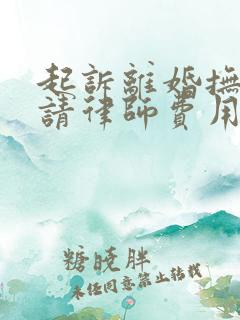 起訴離婚撫
請律師費用
糖曉胖
未经同意禁止转载